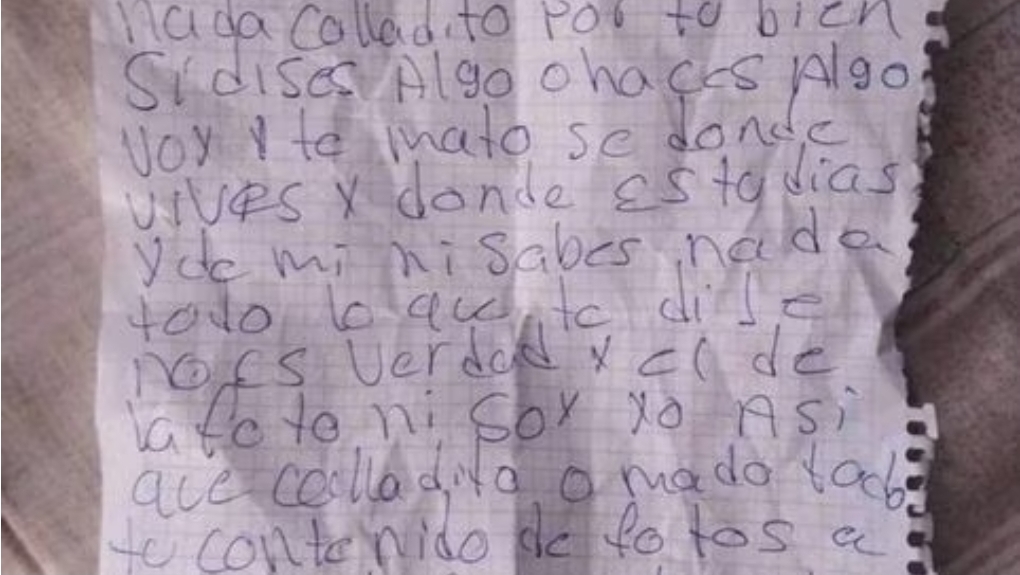 nada calladito por tu bien
Si dises Algo o haces Algo
voy y te mato se donde
vives y donde Estudias
y de mi ni sabes nada
todo lo que te dije
no Es verdad y el de
la foto ni soy yo Asi
que calladito o mado todo
te contenido de fotos a